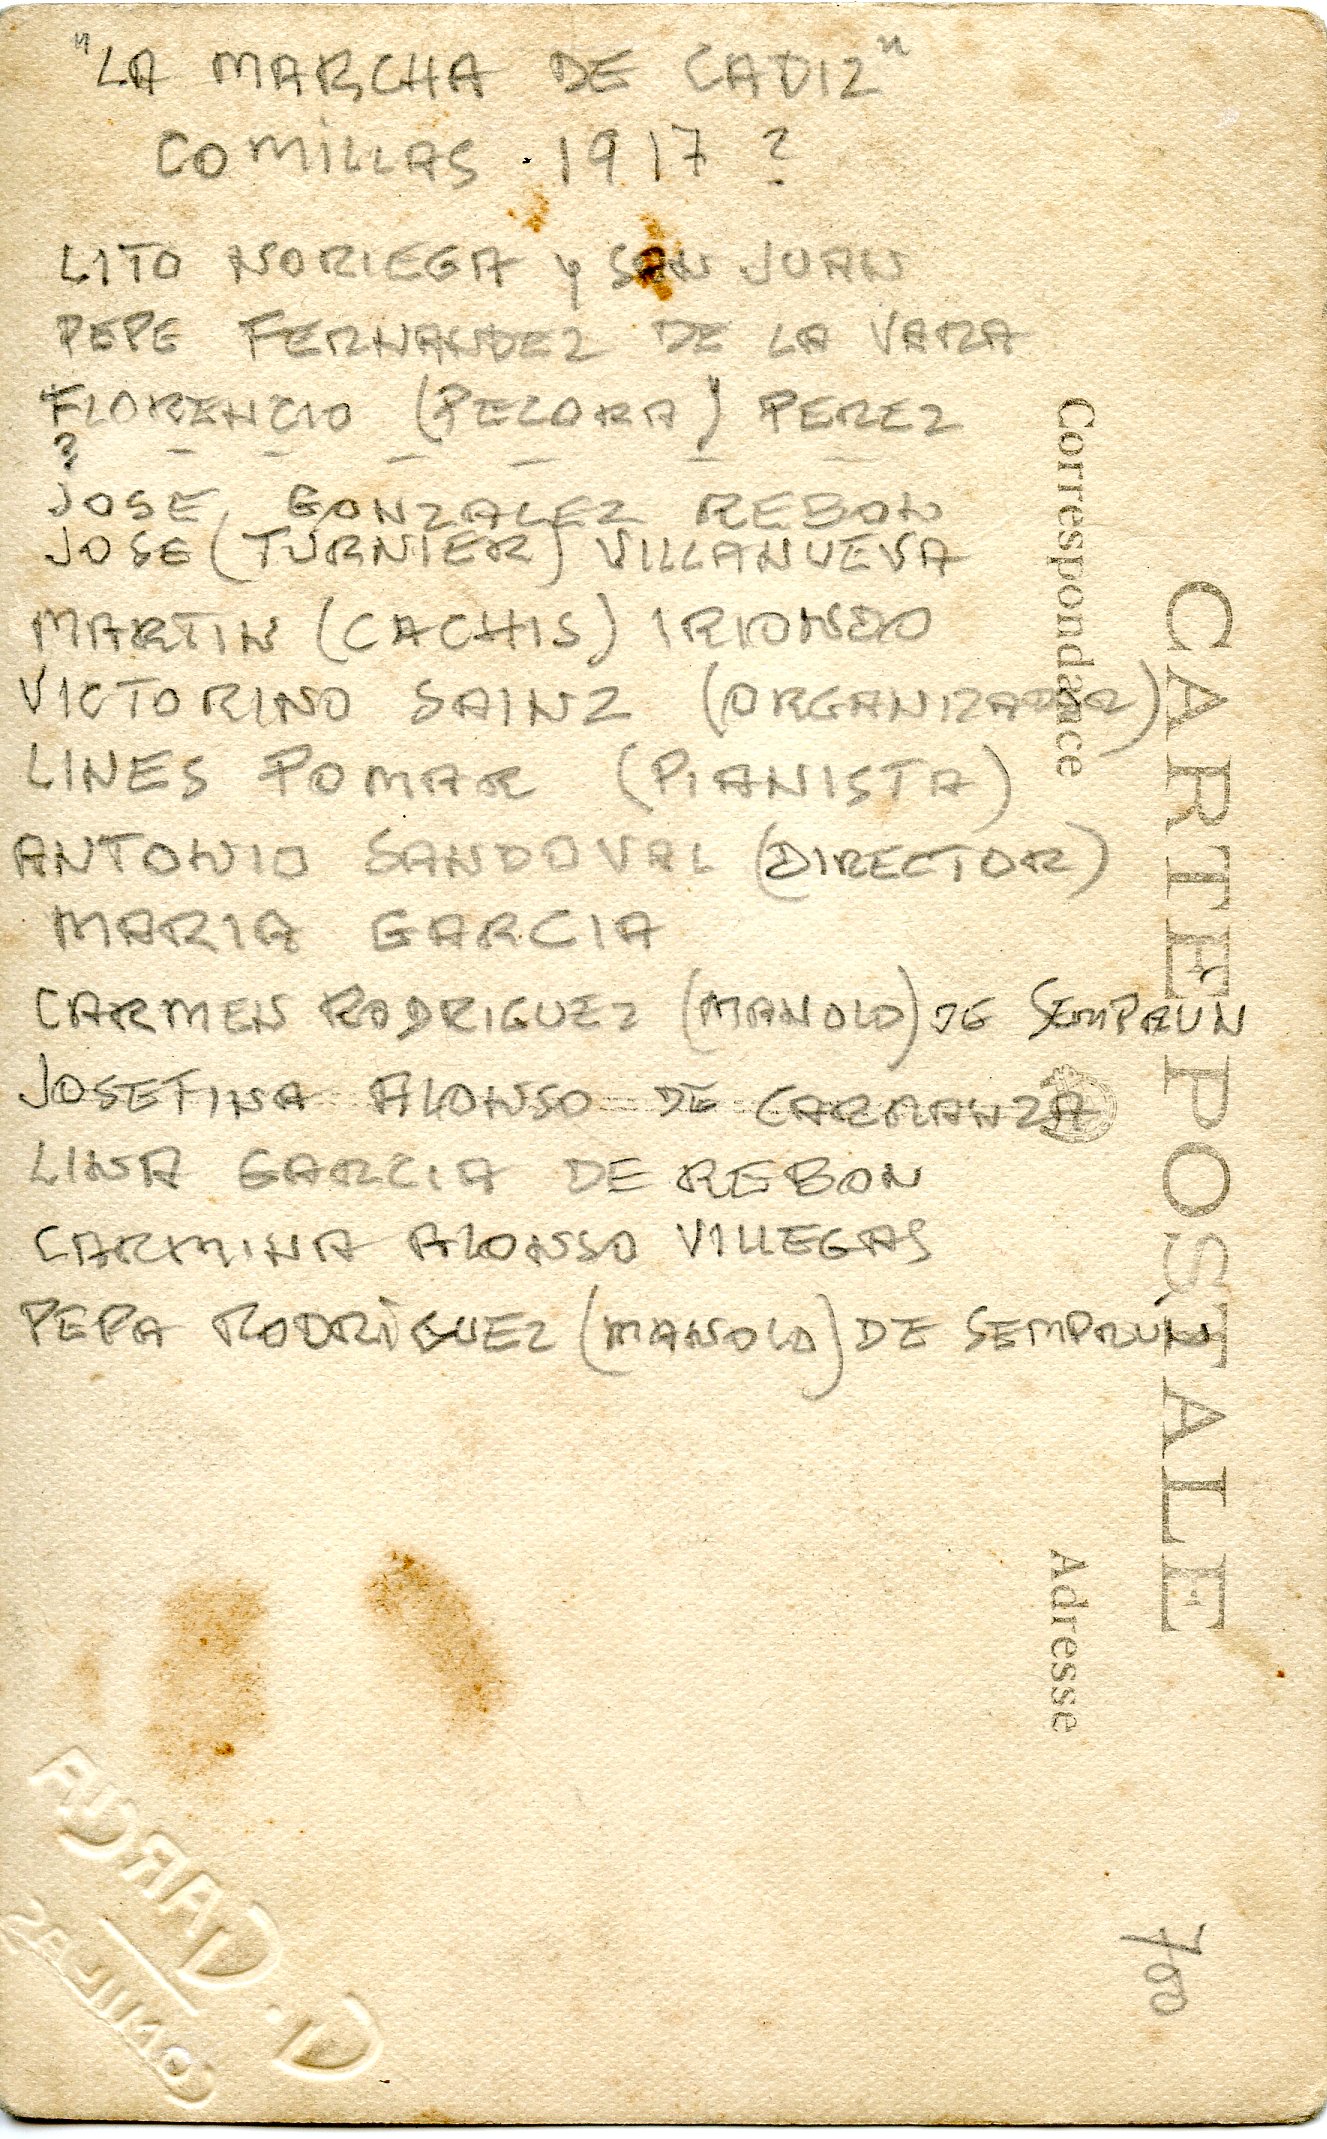 "LA MARCHA DE CADIZ"
COMILLAS . 1917 ?
LITO NORIEGA y SAN JUAN
PEPE FERNANDEZ DE LA VARA
FLORENCIO (PELORA) PEREZ
? _ _ _ _ _ _
JOSE GONZALEZ REBON
JOSE (TURNIER) VILLANUEVA
MARTIN (CACHIS) IRIONDO
VICTORINO SAINZ (ORGANIZADOR)
LINES POMAR (PIANISTA)
ANTONIO SANDOVAL (DIRECTOR)
MARIA GARCIA
CARMEN RODRIGUEZ (MANOLO) DE SEMPRUN
JOSEFINA ALONSO DE CARRANZA
LINA GARCIA DE REBON
CARMINA ALONSO VILLEGAS
PEPA RODRIGUEZ (MANOLO) DE SEMPRÚN
CARTE POSTALE
Correspondance
Adresse
700
G. GARCIA
COMILLAS